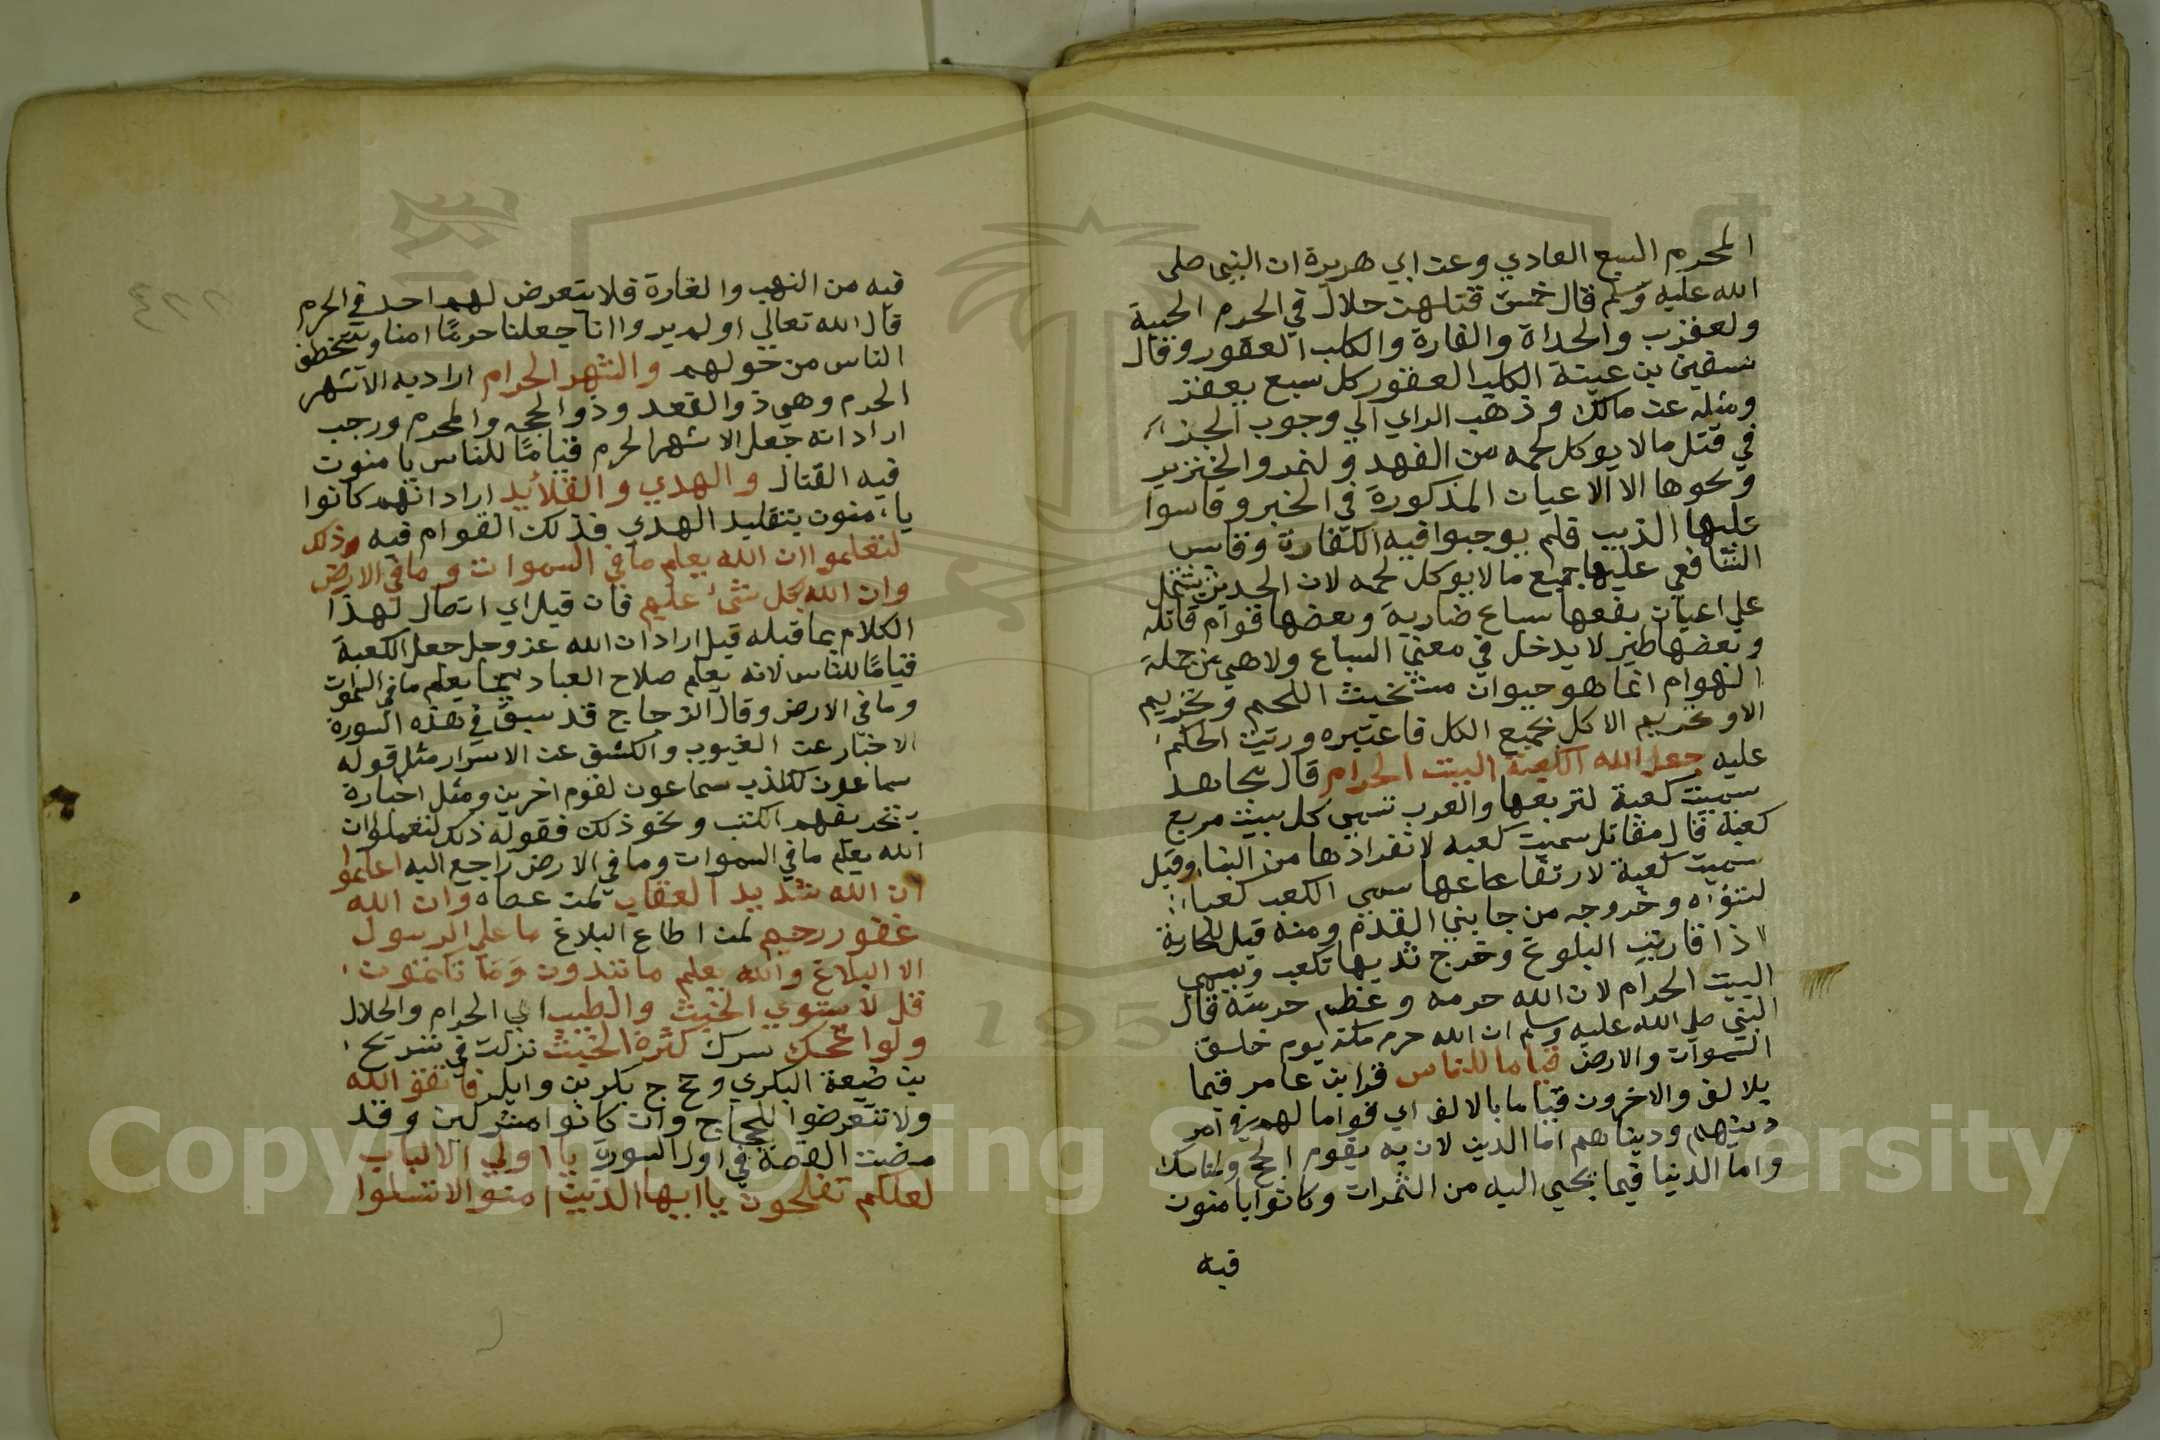 المحرم السبع العادي وعن ابي هريرة ان النبي صلى
الله عليه وسلم قال خمس قتلهن حلال في الحرم الحية
ولعقرب والحداة والفارة والكلب العقور وقال
سفين بن عيينة الكلب العقور كل سبع يعقر
ومثله عن مالك وذهب الراي الي وجوب الجزا
في قتل مالا يوكل لحمه من الفهد ولنمر والخنزير
ونحوها الا الاعيان المذكورة في الخبر وقاسوا
عليها الذيب قلم يوجبوا فيه الكفارة وقاس
الشافعي عليها جميع مالا يوكل لحمه لان الحديث يشمل
علي اعيان بعضها سباع ضارية وبعضها قوام قاتلة
وبعضها طير لا يدخل في معني السباع ولا هي من جملة
الهوام انما هو حيوان مستخبث اللحم وتحريم
الاو تحريم الاكل بجميع الكل فاعتبره ورتب الحكم
عليه جعل الله الكعبة البيت الحرام قال مجاهد
سميت كعبة لتربعها والعرب تسمي كل بيت مربع
كعبة قال مقاتل سميت كعبه لانفرادها من البنا وقيل
سميت كعبة لارتفاعها سمي الكعب كعبا
لنتؤاه وخروجه من جانبي القدم ومنه قيل للجارية
اذا قاربت البلوغ وخرج ثديها تكعب ويسمى
البيت الحرام لان الله حرمه وعظم حرمته قال
النبي صلي الله عليه وسلم ان الله حرم مكة يوم خلق
السموات والارض قياما للناس قرا ابن عامر قيما
بلا الف والاخرون قياما بالالف اي قواما لهم في امر
دينهم ودنياهم اما الدين لان به يقوم الحج ولمناسك
واما الدنيا فيما يجبي اليه من الثمرات وكانوا يامنون
فيه
فيه من النهب والغارة فلا يتعرض لهم احد في الحرم
قال الله تعالي اولم يروا انا جعلنا حرمًا امنا ويتخطف
الناس من حولهم والشهر الحرام اراد به الاشهر
الحرم وهي ذو القعد وذو الحجه والمحرم ورجب
اراد انه جعل الاشهر الحرم قيامًا للناس يامنون
فيه القتال والهدي والقلائد اراد انهم كانوا
يا منون بتقليد الهدي فذلك القوام فيه وذلك
لتعلموا ان الله يعلم مافي السموات ومافي الارض
وان الله بكل شئ عليم فان قيل اي اتصال لهذا
الكلام بما قبله قيل اراد ان الله عز وجل جعل الكعبة
قيامًا للناس لانه يعلم صلاح العباد كما يعلم مافي السموات
ومافي الارض وقال الزجاج قد سبق في هذه السورة
الاخبار عن الغيوب والكشف عن الاسرار مثل قوله
سماعون للكذب سماعون لقوم اخرين ومثل اخباره
بتحريفهم الكتب ونحو ذلك فقوله ذلك لتعلموا ان
الله يعلم مافي السموات ومافي الارض راجع اليه اعلموا
ان الله شديد العقاب لمن عصاه وان الله
غفور رحيم لمن اطاع البلاغ ما علي الرسول
الا البلاغ والله يعلم ما تبدون وما تكتمون
قل لا يستوي الخبيث والطيب اي الحرام والحلال
ولو اعجبك سرك كثرة الخبيث نزلت في شريح
بن ضيعة البكري وحجاج بكر بن وايل فاتقو الله
ولا تتعرضوا للحجاج وان كانوا مشركين وقد
مضت القصة في اول السورة يا اولي الالباب
لعلكم تفلحون يا ايها الذين امنو الا تسلوا
Copyright © King Saud University